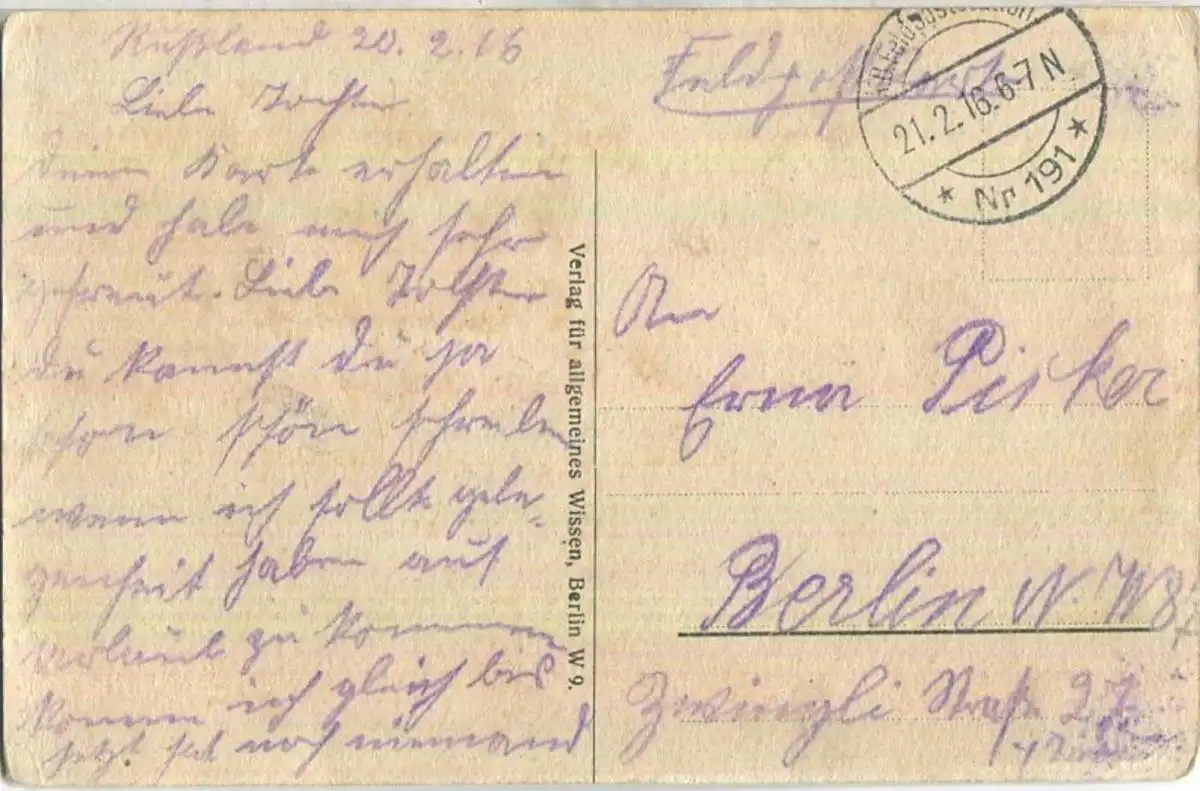 Rußland 20. 2. 16
Liebe Tochter
deine Karte erhalten
und habe mich sehr
gefreut. Liebe Tochter
du kannst du ja
schon schön schreiben
wenn ich sollte gele-
genheit haben auf
Urlaub zu kommen
komme ich gleich bis
jetzt hat noch niemand
Verlag für allgemeines Wissen, Berlin W 9.
Feldpostkarte
K.B. Feldpoststation.
21. 2. 16. 6-7 N
* Nr 191 *
An
Erna Pisker
Berlin N. W 87
Zwingli Straße